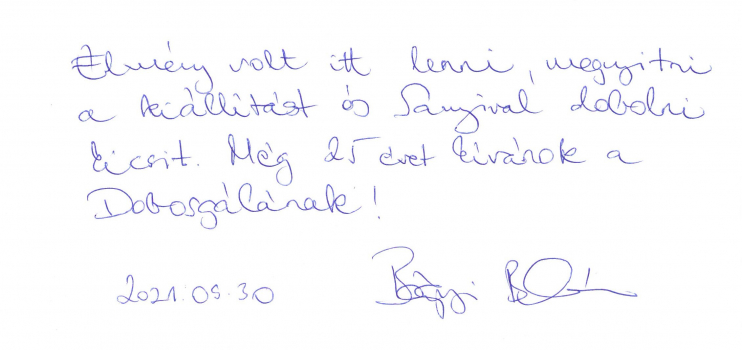 Élmény volt itt lenni, megnyitni
a kiállítást és Sanyival dobolni
kicsit. Még 25 évet kívánok a
Dobosgálának!
2021.09.30